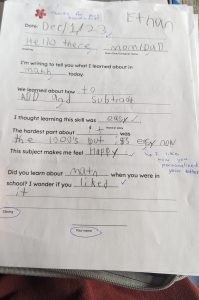 Ethan
Date: Dec/1/23
Hello there, mom/Dad
I'm writing to tell you what I learned about in
math today.
We learned about how to
ADD and subtract
I thought learning this skill was easy
The hardest part about it was
the 1000's but it's easy now
This subject makes me feel Happy
I like
how you
personalized
your letter
Did you learn about math when you were in
school? I wonder if you liked
it
Closing
Your name